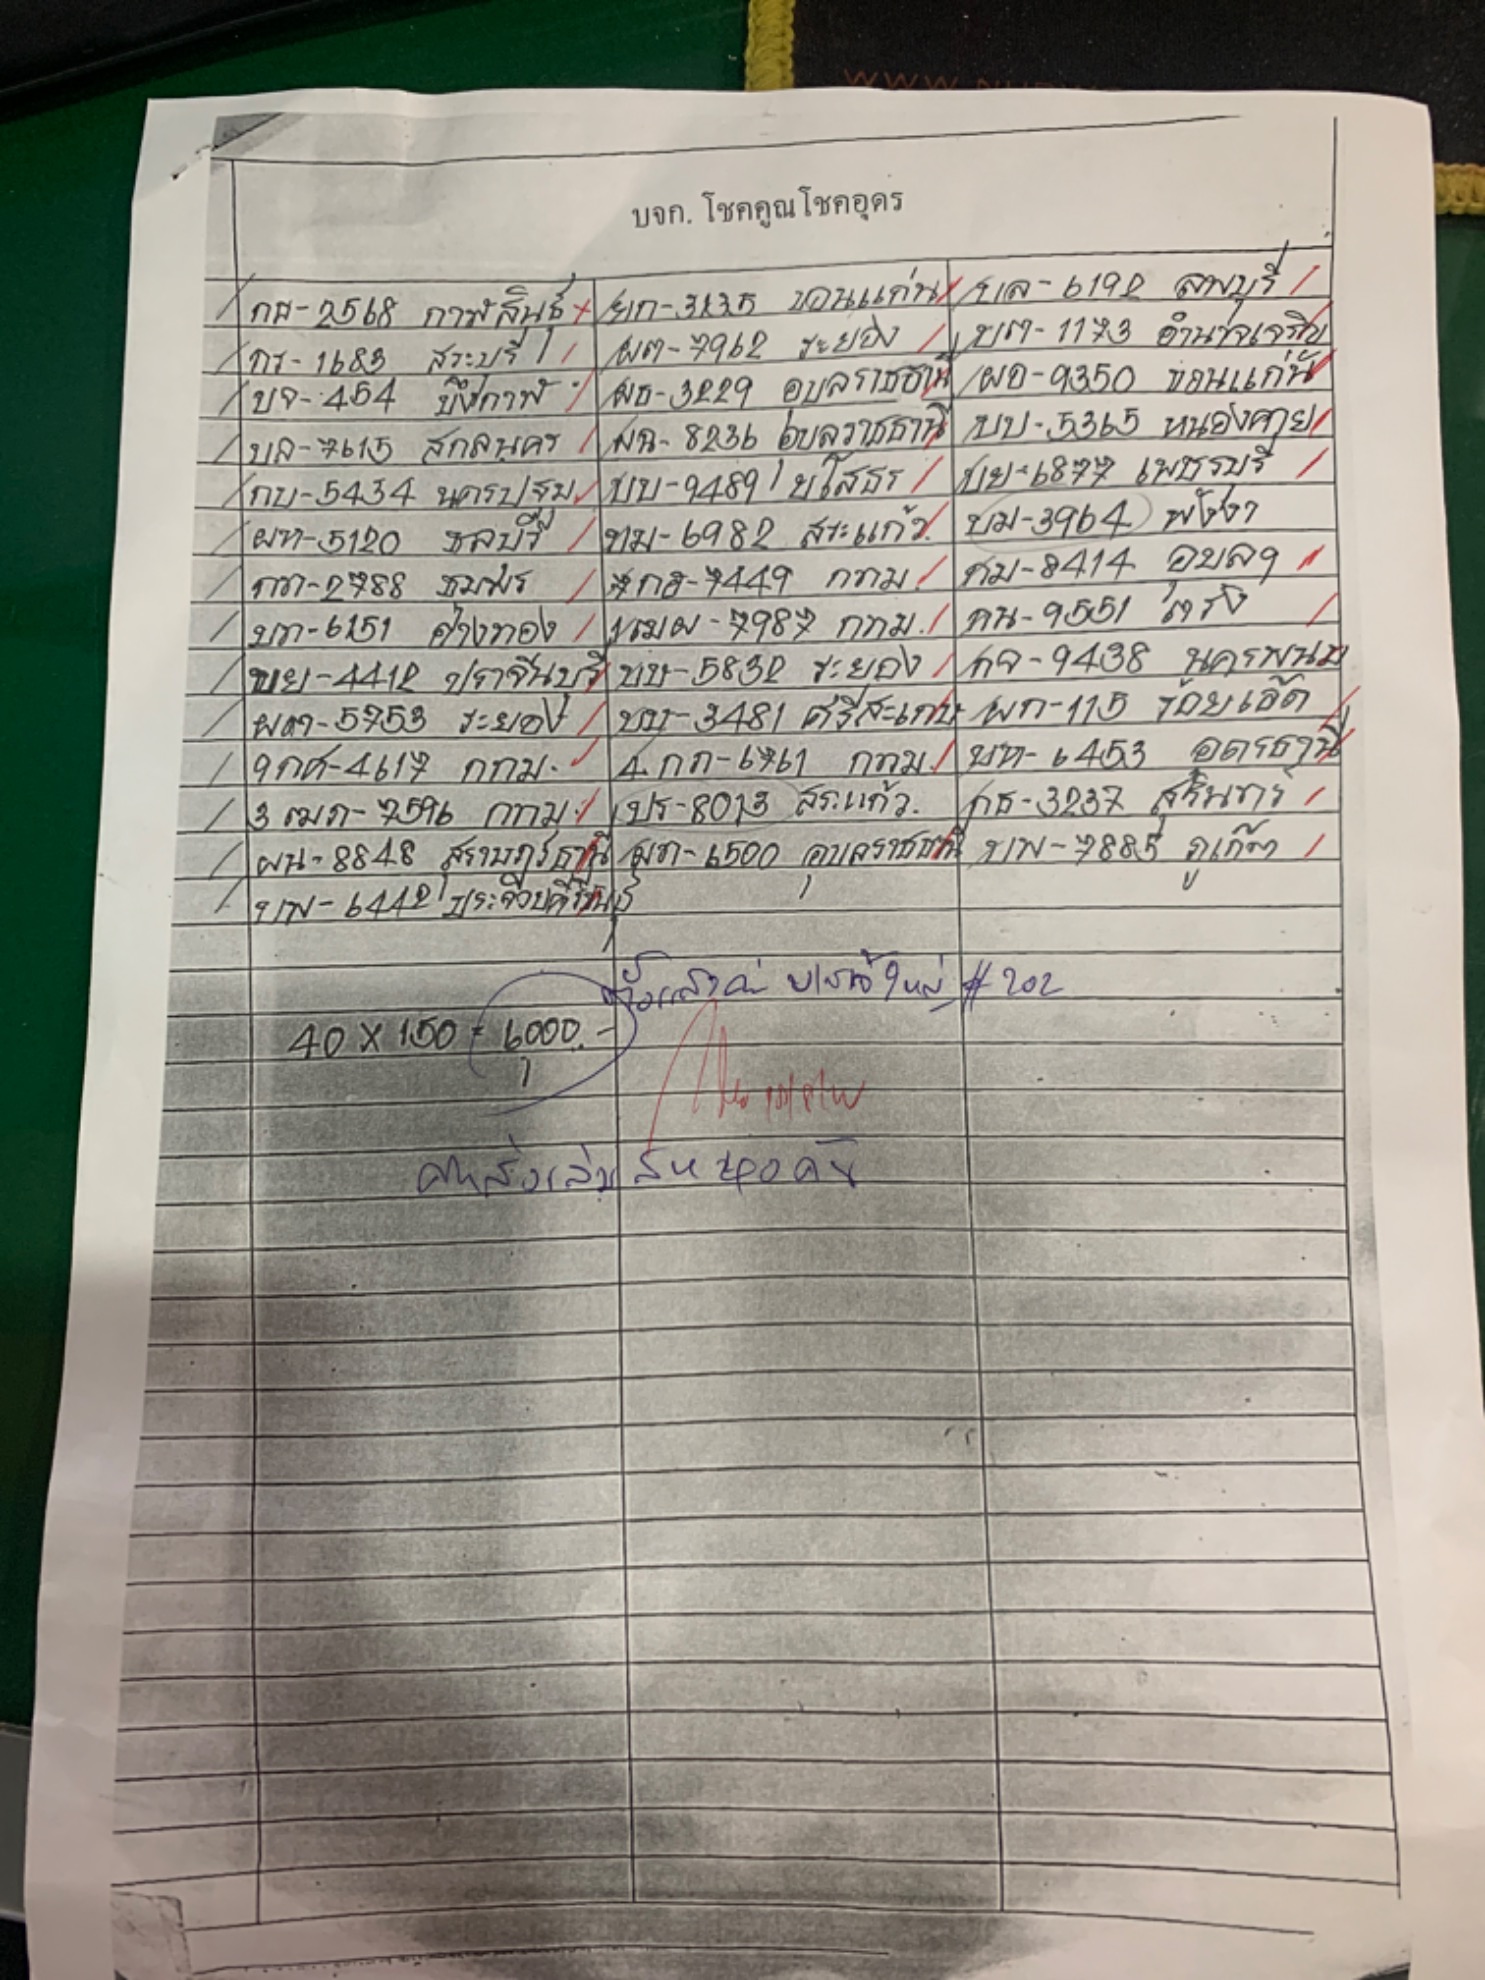 บจก. โชคคูณโชคอุดร
กส-2568 กาฬสินธุ์ ยก-3235 ขอนแก่น บล-6192 ลพบุรี
กร-1683 สระบุรี ผต-7962 ระยอง บต-1173 อำนาจเจริญ
บจ-454 บึงกาฬ ผธ-3229 อุบลราชธานี ผอ-9350 ขอนแก่น
บล-7615 สกลนคร ผฉ-8236 อุบลราชธานี บบ-5365 หนองคาย
กบ-5434 นครปฐม บบ-9489 ยโสธร บย-6877 เพชรบุรี
ผท-5120 ชลบุรี ทม-6982 สระแก้ว บม-3964 พังงา
กต-2788 ชุมพร 7กอ-7449 กทม. กม-8414 อุบลฯ
บก-6151 อ่างทอง 1ฒผ-7987 กทม. กน-9551 ตรัง
ขย-4412 ปราจีนบุรี ขบ-5832 ระยอง กจ-9438 นครพนม
ผต-5753 ระยอง บบ-3481 ศรีสะเกษ ผก-115 ร้อยเอ็ด
9กศ-4617 กทม. 4กก-6761 กทม. บท-6453 อุดรธานี
3ฒภ-7596 กทม. ปร-8013 สระแก้ว กธ-3237 สุรินทร์
ผน-8848 สุราษฎร์ธานี ผก-6500 อุบลราชธานี บพ-7885 ภูเก็ต
บพ-6442 ประจวบคีรีขันธ์
#202
40 X 150 = 6000.-
ค่าส่งเล่ม